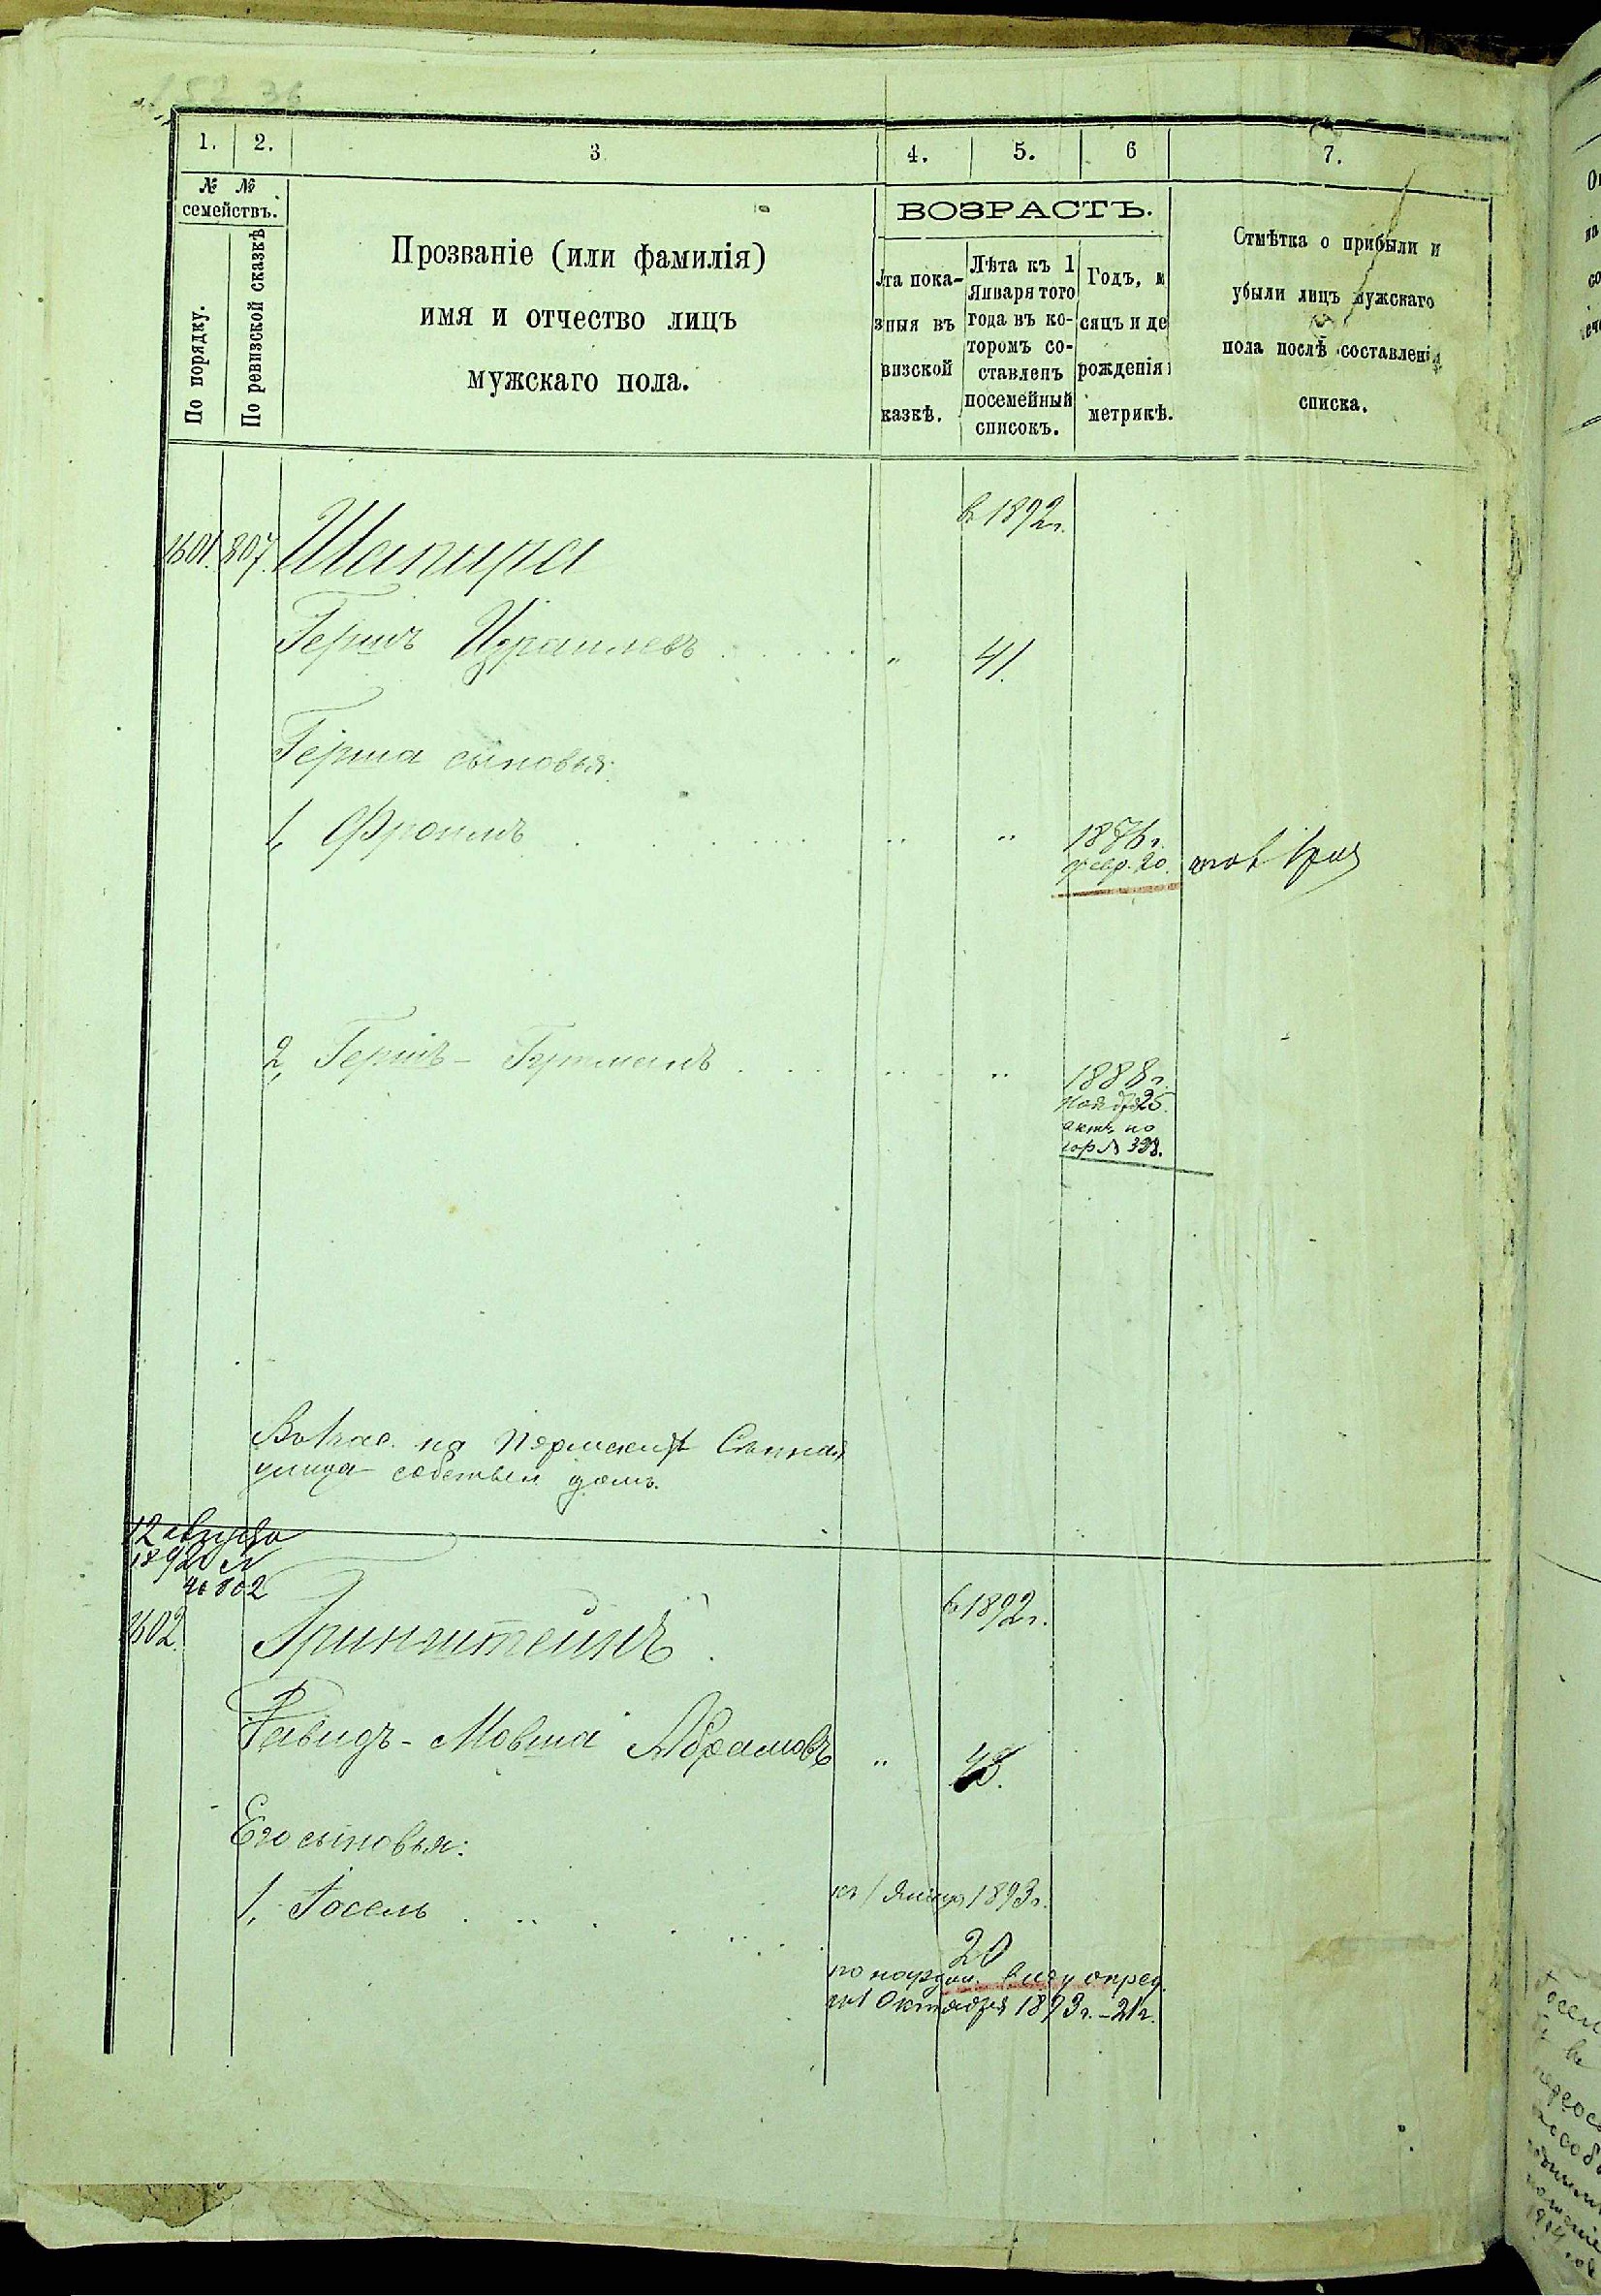 1.
2.
3
4.
5.
6
7.
№ №
семействъ.
По порядку.
По ревизской сказкѣ
Прозваніе (или фамилія)
имя и отчество лицъ
мужскаго пола.
ВОЗРАСТЪ.
ѣта пока-
зныя въ
визской
казкѣ.
Лѣта къ 1
Января того
года въ ко-
торомъ со-
ставленъ
посемейный
списокъ.
Годъ, м
сяцъ и де
рожденія
метрикѣ.
Отмѣтка о прибыли и
убыли лицъ мужскаго
пола послѣ составленія
списка.
в 1892г.
1601. 807. Шапира
Гершъ Израилевъ " 41.
Герша сыновья:
1, Фроимъ " " 1876г.
февр. 20.
2, Гершъ- " " 1888г.
Ноября 25.
актъ по
№ 328.
на Сѣнная
улица собствен домъ.
12 августа
1892 №
1602. Гринштейнъ в 1892г.
Давидъ-Мовша Абрамовъ " 45.
Его сыновья:
1, Іосель къ 1 Января 1893г.
20
по наруж. виду опред.
къ 1 Октября 1893г. - 21г.